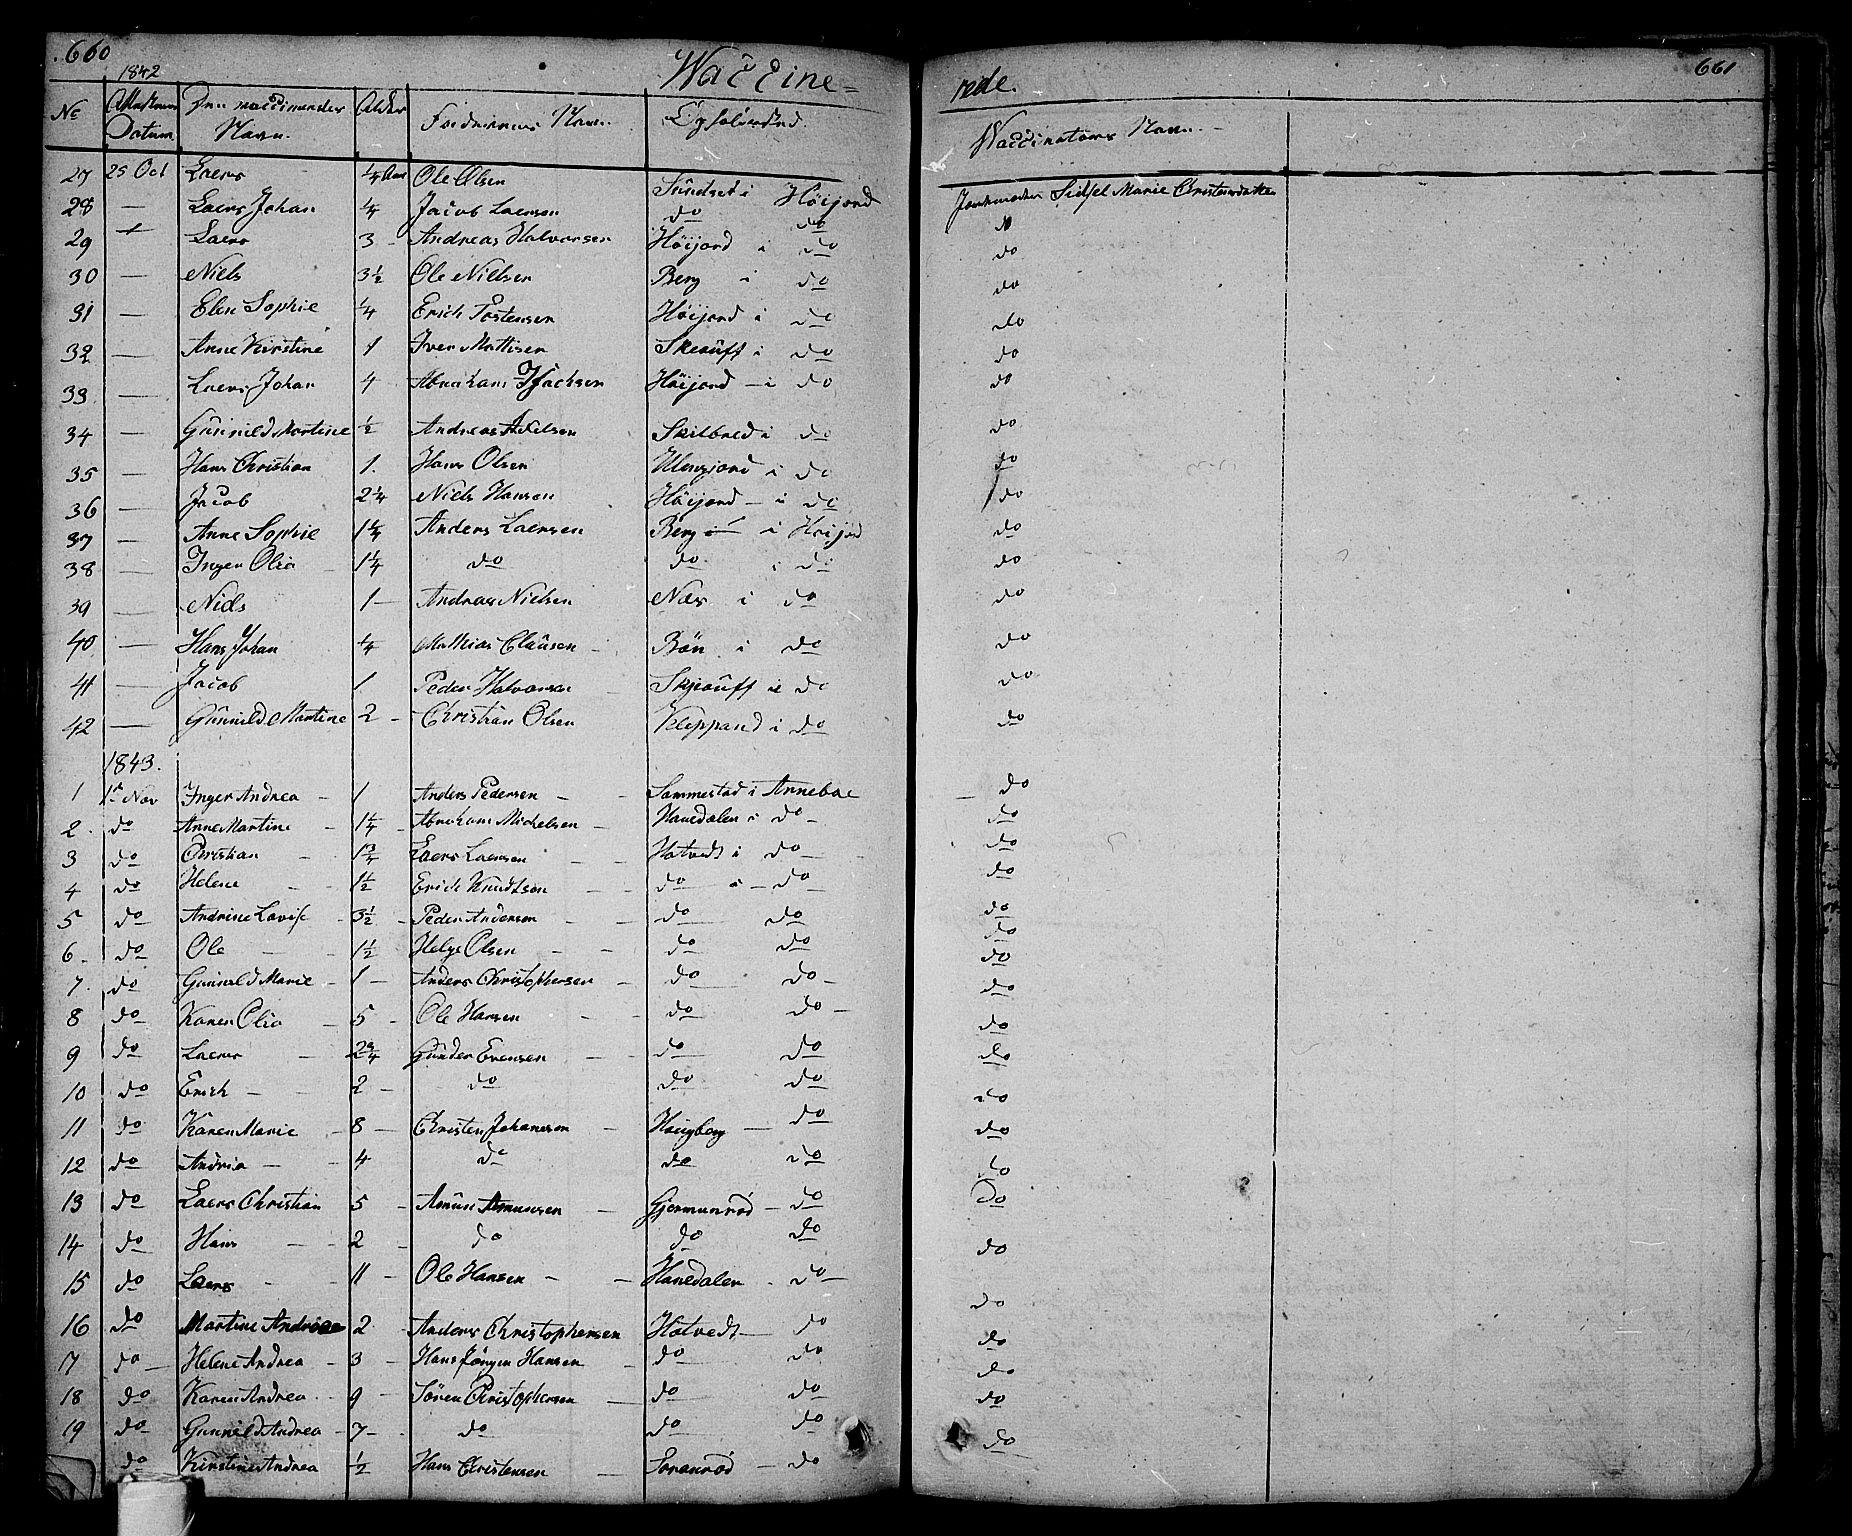 660 Waccine= rede. 661
1842
No Attestens Datum Den vaccinerdes Navn. Alder Forældrenes Navn. Opholdssted. Waccinators Navn.
27 25 Oct Laers ¼ Aar Ole Olsen Sundset i Höijord Jordemoder Sidsel Marie Christensdatter
28 — Laers Johan ¼ Jacob Laersen do do do
29 — Laers 3 - Andreas Halvorsen Höijord i do do
30 — Niels 3½ Ole Nielsen Berg i do do
31 — Elen Sophie ¼ Erich Tostensen Höijord i do do
32 — Anne Kirstine 1 Iver Mattisen Skeauff i do do
33 — Laers Johan 4 Abraham Isachsen Höijord - i do do
34 — Gunnild Martine ½ Andreas Axelsen Skilbred i do do
35 — Hans Christian 1. Hans Olsen i do do
36 — Jacob 2¼ Niels Hansen Höijord - i do do
37 — Anne Sophie 1¼ Anders Laersen Berg i Höijord do
38 — Inger Olia 1¼ do do i do do
39 — Niels 1 — Andreas Nielsen Nes i do do
40 — Hans Johan ¼ Mathias Claüsen Bön i do do
41 — Jacob 1 Peder Halvorsen Skjeauff i do do
42 — Gunnild Martine 2 - Christian Olsen Kleppand i do do
1843.
1 1st Nov Inger Andrea - 1 Anders Pedersen - - Sommestad i Anneboe - do
2. do Anne Martine - 1¼ - Abraham Michelsen - Hanedalen i do - do
3 do Christian - 1¾ Laers Laersen - - Hotvedt i do - do
4 do Helene - 1½ Erich Knudtsen - - do i - do do
5 do Andrine Lovise - 3½ - Peder Andersen - - do do do
do
6. do Ole - - 1½ Helge Olsen - - do do do
7. do Gunnild Marie - 1 - Anders Christophersen - do do - do
8 do Karen Olia - 5 - Ole Hansen - - do do - do
9 do Laers - 2¾ Gunder Evensen - - do do do
10 do Erich - - 2 - do do do do
11 do Karen Marie - 8 - Christen Johannesen - Haugberg - do do
12 do Andria - - 4 do do do do
13 do Laers Christian 5 - Amün Amünsen - Gjermunrød - do do
14 do Hans - - 2 - do do do do
15 do Laers - - 11 - Ole Hansen - - Hanedalen - do do
16 do Martine Andrea 2 - Anders Christophersen Hotvedt - do do
17 do - Helene Andrea - 3 - Hans Jörgen Hansen - do do do
18 do Karen Andrea - 9 - Sören Christophersen - do do do
19 do Gunnild Andrea - 7 - do do do do
do Kirstine Andrea ½ Hans Christensen - Soranrød - do